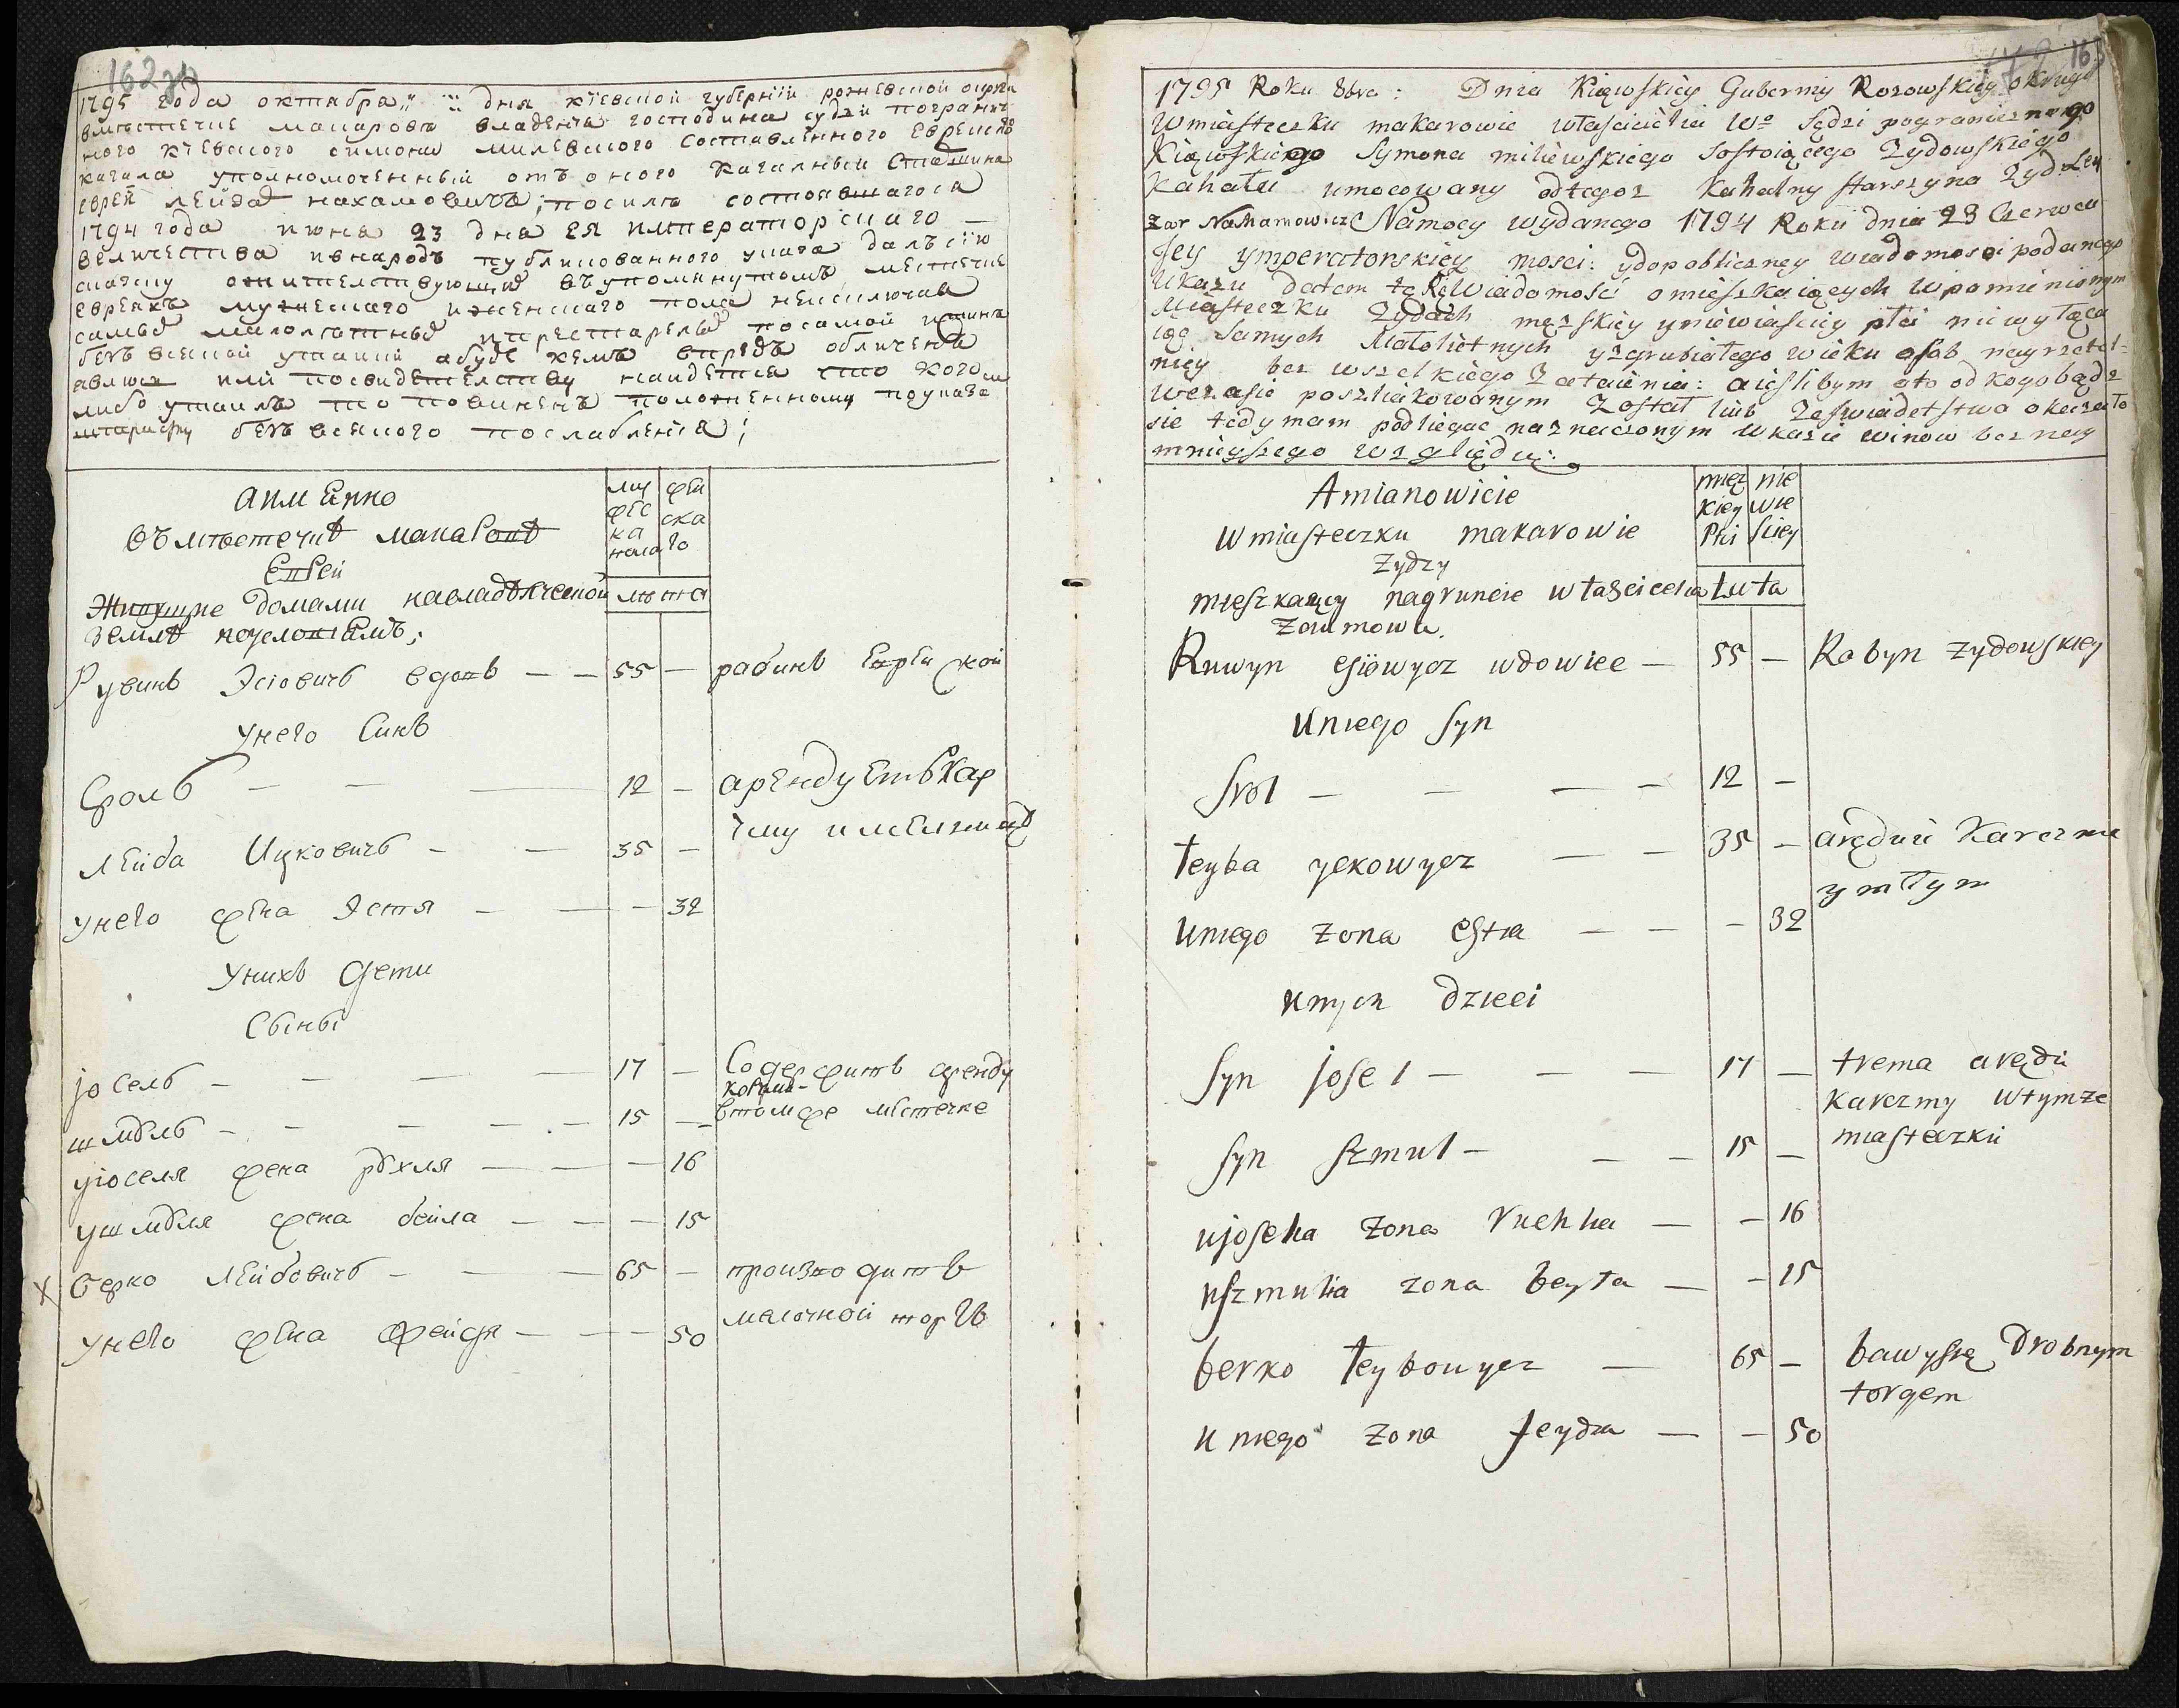 162
1795 года октабра дня кіевской губернїи рожевской округи
вместечке макарове владенча господина судзи погранич
ного кіевского симона милевского составленного Еврейско
кагала уполномоченный отъ оного кагалный Старшина
еврей лейзар нахамовичъ; посилѣ состоавшагося
1794 года июна 23 дна ея императорскаго —
величества инародъ публикованного указа далъ сїю
сказку опителствующихъ въупоминутомъ местечке
евреяхъ мужескаго иженскаго пола неисключая
самыхъ малолѣтныхъ ипрестарелыхъ посамой истинне
безъ всякой утайки абуде кемъ впредъ обличенъ
явлюсь или посвидетелству найдется что кого
либо утаилъ то повиненъ положенному поуказе
штрафу безъ всякого послабленїя;
аимЕнно
въмѣстечкѣ макаровѣ
Евреи
Живущие домами навладѣлческой
землѣ
муж
ска
жен
ска
го
лѣта
Рувинъ Эсіовичъ вдовъ — — 55 — рабинъ Еврейской
унего Синъ
Сроль — — — 12 — арендуетъ кар
чму имелницу
лЕйба Ицковичъ — — 35 —
унего жена Эстя — — — 32
унихъ дети
Сыны
іосель — — — — 17 — Содержитъ аренду
корчми
шмуль — — — — 15 — втомже местечке
уіоселя жена рухля — — — 16
ушмуля жена бейла — — — 15
х берко лЕйбовичъ — — 65 — производитъ
мелочной торгъ
унего жена фейдя — — — 50
163
1795 Roku 8bra : Dnia Kiąwskiey Gubernij Rozowskiey okrugu
Wmiasteczku makarowie właściciela Wo Sędzi pogranicznego
Kiąwskiego Symona milewskiego Sostoiącego Zydowskiego
Kahału umocowany odtegoz Kahalny starszyna Zyd Ley
zor Nachamowicz Namocy wydanego 1794 Roku dnia 23 Czerwca
Jey ymperatorskiey mosci: ydopobliczney wiadomosci podanego
Ukazu dałem tęsię Wiadomość omieszkaiących Wpomienionym
Miasteczku Zydach męzskiey yniewiesciey płci niewyłącza
iąc Samych Małoletnych yzgrubiałego wieku osob nayrzetel-
niey bez wszelkiego Zataienia: aiesłibym oto odkogobądz
Wczasie poszlakowanym Został lub Zaswiadetstwo okazało
sie tedymam podlegac naznaczonym Ukazie winow beznay
mnieyszego względu:
Amianowicie
Wmiasteczku makarowie
Zydzy
mieszkaiący nagruncie właścicela
Zdumowa.
męz
kiey
Płci
nie
wie
sciey
Lata
Ruwyn esiowycz wdowiec — 55 — Rabyn zydowskiey
Uniego syn
Srol — — — — 12 —
Leyba yckowycz — — 35 — arędui Karczmę
ymłyn
Uniego zona estra — — — 32
unych dzieci
Syn josel — — — 17 — trema arędu
Karczmy wtymze
Syn szmul — — — 15 — miasteczku
ujosela zona ruchla — — 16
uszmula zona beyła — — 15
berko Leybowycz — 65 — bawysię Drobnym
torgem
u niego zona feydza — — 50